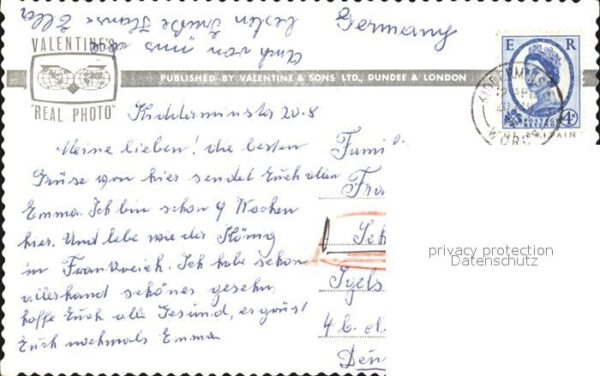 Auch von uns alle
besten Grüße
Germany
VALENTINE'S
"REAL PHOTO"
PUBLISHED BY VALENTINE & SONS LTD., DUNDEE & LONDON
E R
POSTAGE REVENUE
4D
KIDDERMINSTER
WORCS
Kidderminster 20.8
Meine lieben! die besten
Grüse von hier sendet Euch allen
Emma. Ich bin schon 9 Wochen
hier. Und lebe wie der König
in Frankreich. Ich habe schon
allerhand schönes gesehn,
hoffe Euch alle Gesund, es grüst
Euch nochmals Emma
Famil
Fra
Sch
Igels
4 b. d.
Dän
privacy protection
Datenschutz